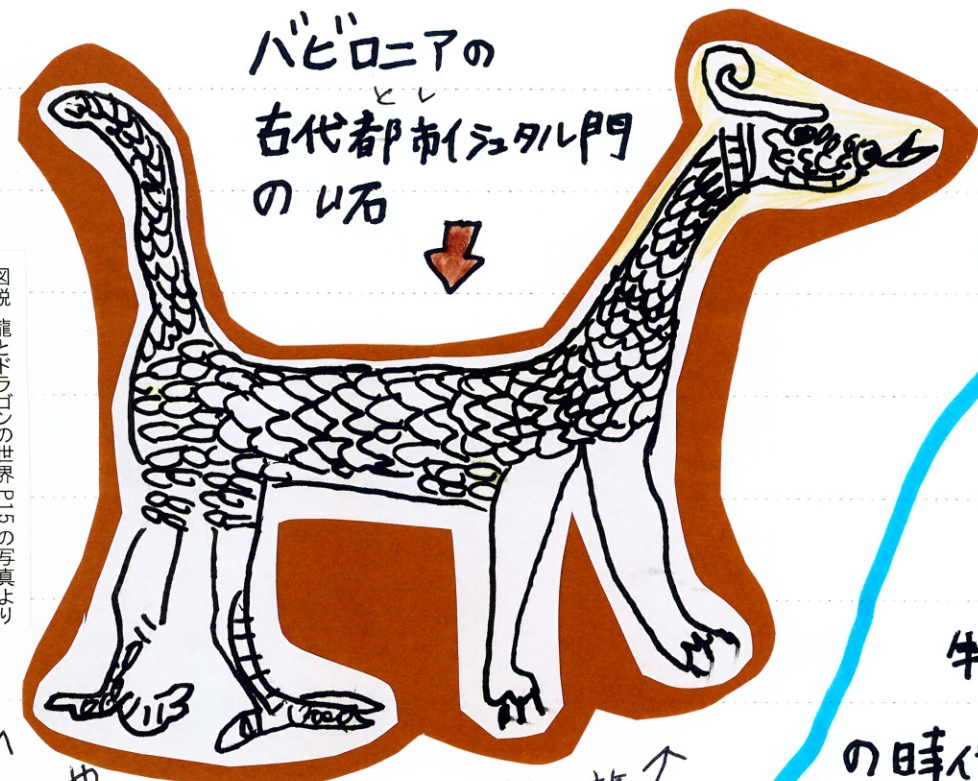 バビロニアの
とし
古代都市イシュタル門
の石
図説 龍とドラゴンの世界 P15の写真より
の時代